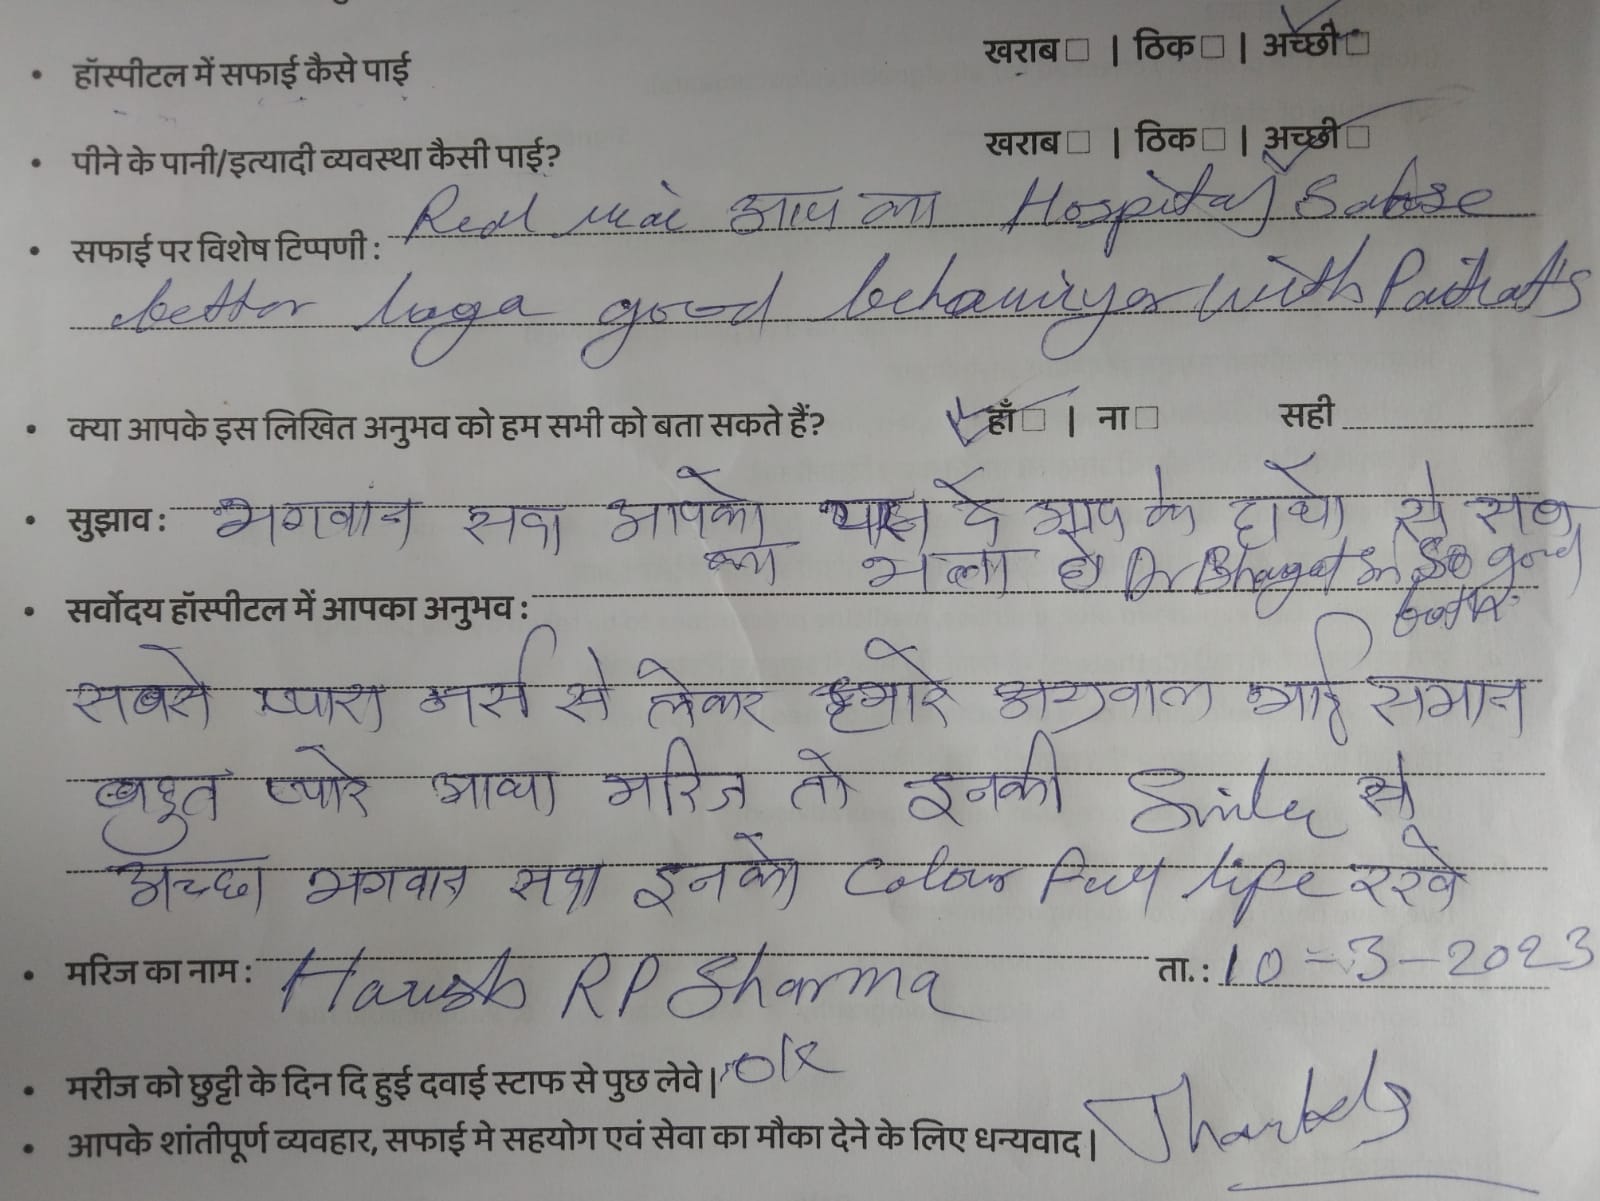 • हॉस्पीटल में सफाई कैसे पाई खराब□ | ठिक□ | अच्छी□
• पीने के पानी/इत्यादी व्यवस्था कैसी पाई? खराब□ | ठिक□ | अच्छी□
• सफाई पर विशेष टिप्पणी : Real mai आप का Hospital Sabse
better laga good behaviryor with Patients
• क्या आपके इस लिखित अनुभव को हम सभी को बता सकते हैं? हाँ□ | ना□ सही
• सुझाव : भगवान सदा आपको दे आप के हाथो से सब
का भला हो Dr Bhagat So good
• सर्वोदय हॉस्पीटल में आपका अनुभव :
सबसे प्यारा नर्स से लेकर हमारे अग्रवाल भाई समान
बहुत प्यारे आया मरिज तो इनकी Smile से
अच्छा भगवान सदा इनको Colour Full life रखे
• मरिज का नाम : Harish RP Sharma ता.: 10-3-2023
• मरीज को छुट्टी के दिन दि हुई दवाई स्टाफ से पुछ लेवे| OK
• आपके शांतीपूर्ण व्यवहार, सफाई मे सहयोग एवं सेवा का मौका देने के लिए धन्यवाद| Thanks